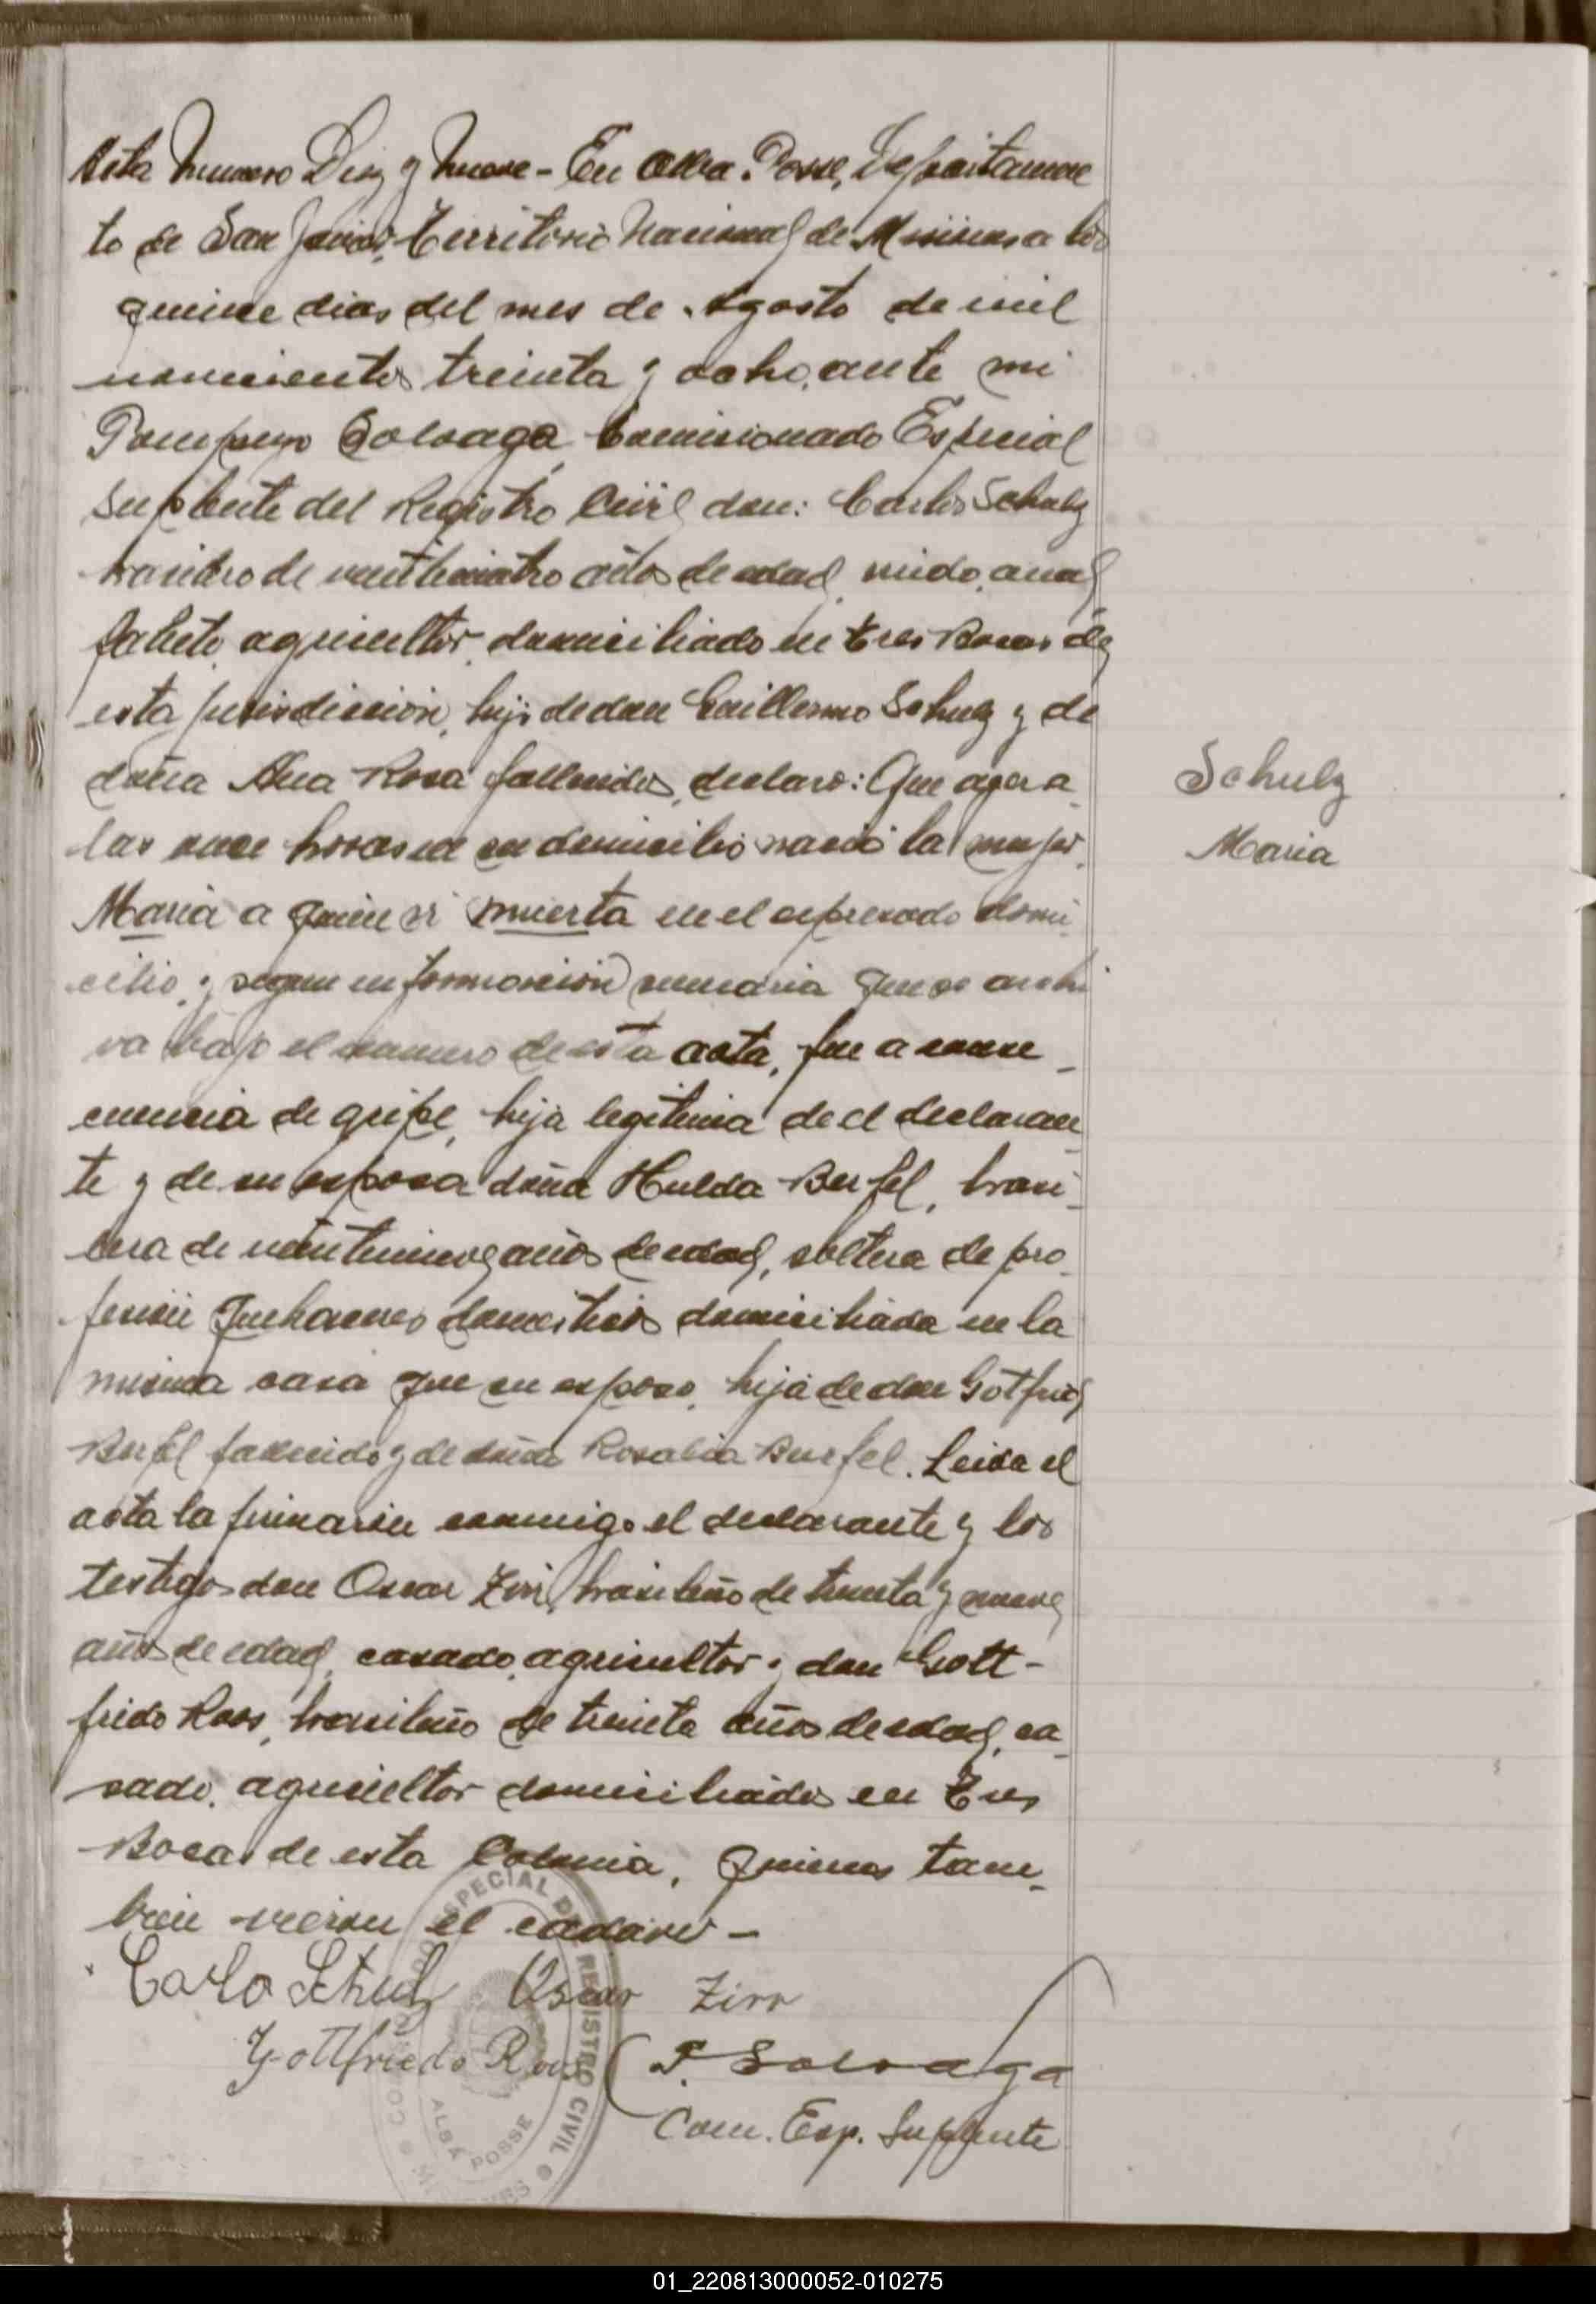 Acta Numero Diez y Nueve - En Alba Posse, Departamen
to de San Javier, Territorio Nacional de Misiones a los
quince dias del mes de Agosto de mil
novecientos treinta y ocho, ante mi
Pompeyo Solvaga Comisionado Especial
Suplente del Registro Civil don: Carlos Schulz
de veinticuatro años de edad, anal
fabeto, agricultor, domiciliado en Tres Bocas de
esta jurisdiccion, hijo de don Guillermo Schulz y de
doña Ana Rosa fallecidos, declaro: Que ayer a
las once horas en su domicilio nació la mujer
Maria a quien vi muerta en el expresado domi
cilio, y segun informacion sumaria que se archi
va bajo el numero de esta acta, fue a conse
cuencia de gripe, hija legitima de el declaran
te y de su esposa doña Hulda Berfel, brasi
lera de años de edad, soltera de pro
fesion quehaceres domesticos domiciliada en la
misma casa que su esposo, hija de don Gotfrid
Berfel fallecido y de doña Rosalia Burfel. Leida el
acta la firmaron conmigo el declarante y los
testigos don Oscar Zirr, brasileño de treinta y nueve
años de edad, casado, agricultor y don Gott-
frido Roos, brasileño de treinta años de edad, ca
sado, agricultor domiciliados en Tres
Bocas de esta Colonia, Quienes tam
bien vieron el cadaver -
Carlo Schulz Oscar Zirr
Gottfriedo Roos P. Solvaga
Com. Esp. Suplente
Schulz
Maria
ESPECIAL DEL REGISTRO CIVIL
ALBA POSSE
01_220813000052-010275